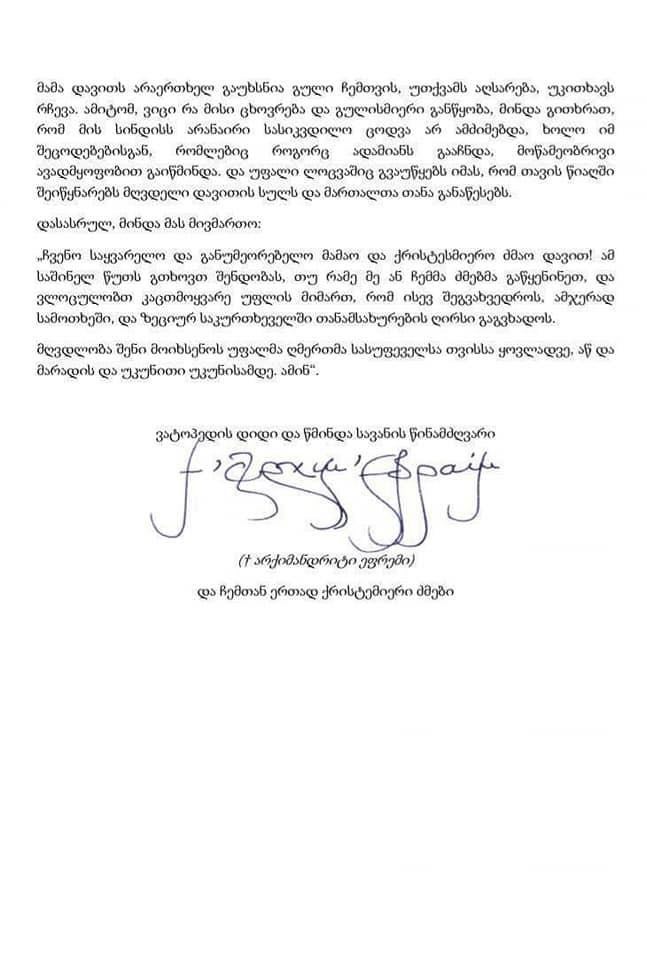 მამა დავითს არაერთხელ გაუხსნია გული ჩემთვის, უთქვამს აღსარება, უკითხავს
რჩევა. ამიტომ, ვიცი რა მისი ცხოვრება და გულისმიერი განწყობა, მინდა გითხრათ,
რომ მის სინდისს არანაირი სასიკვდილო ცოდვა არ ამძიმებდა, ხოლო იმ
შეცოდებებისგან, რომლებიც როგორც ადამიანს გააჩნდა, მოწამეობრივი
ავადმყოფობით გაიწმინდა. და უფალი ლოცვაშიც გვაუწყებს იმას, რომ თავის წიაღში
შეიწყნარებს მღვდელი დავითის სულს და მართალთა თანა განაწესებს.
დასასრულ, მინდა მას მივმართო:
„ჩვენო საყვარელო და განუმეორებელო მამაო და ქრისტესმიერო ძმაო დავით! ამ
საშინელ წუთს გთხოვთ შენდობას, თუ რამე მე ან ჩემმა ძმებმა გაწყენინეთ, და
ვლოცულობთ კაცთმოყვარე უფლის მიმართ, რომ ისევ შეგვახვედროს, ამჯერად
სამოთხეში, და ზეციურ საკურთხეველში თანამსახურების ღირსი გაგვხადოს.
მღვდლობა შენი მოიხსენოს უფალმა ღმერთმა სასუფეველსა თვისსა ყოვლადვე, აწ და
მარადის და უკუნითი უკუნისამდე. ამინ“.
ვატოპედის დიდი და წმინდა სავანის წინამძღვარი
(† არქიმანდრიტი ეფრემი)
და ჩემთან ერთად ქრისტემიერი ძმები